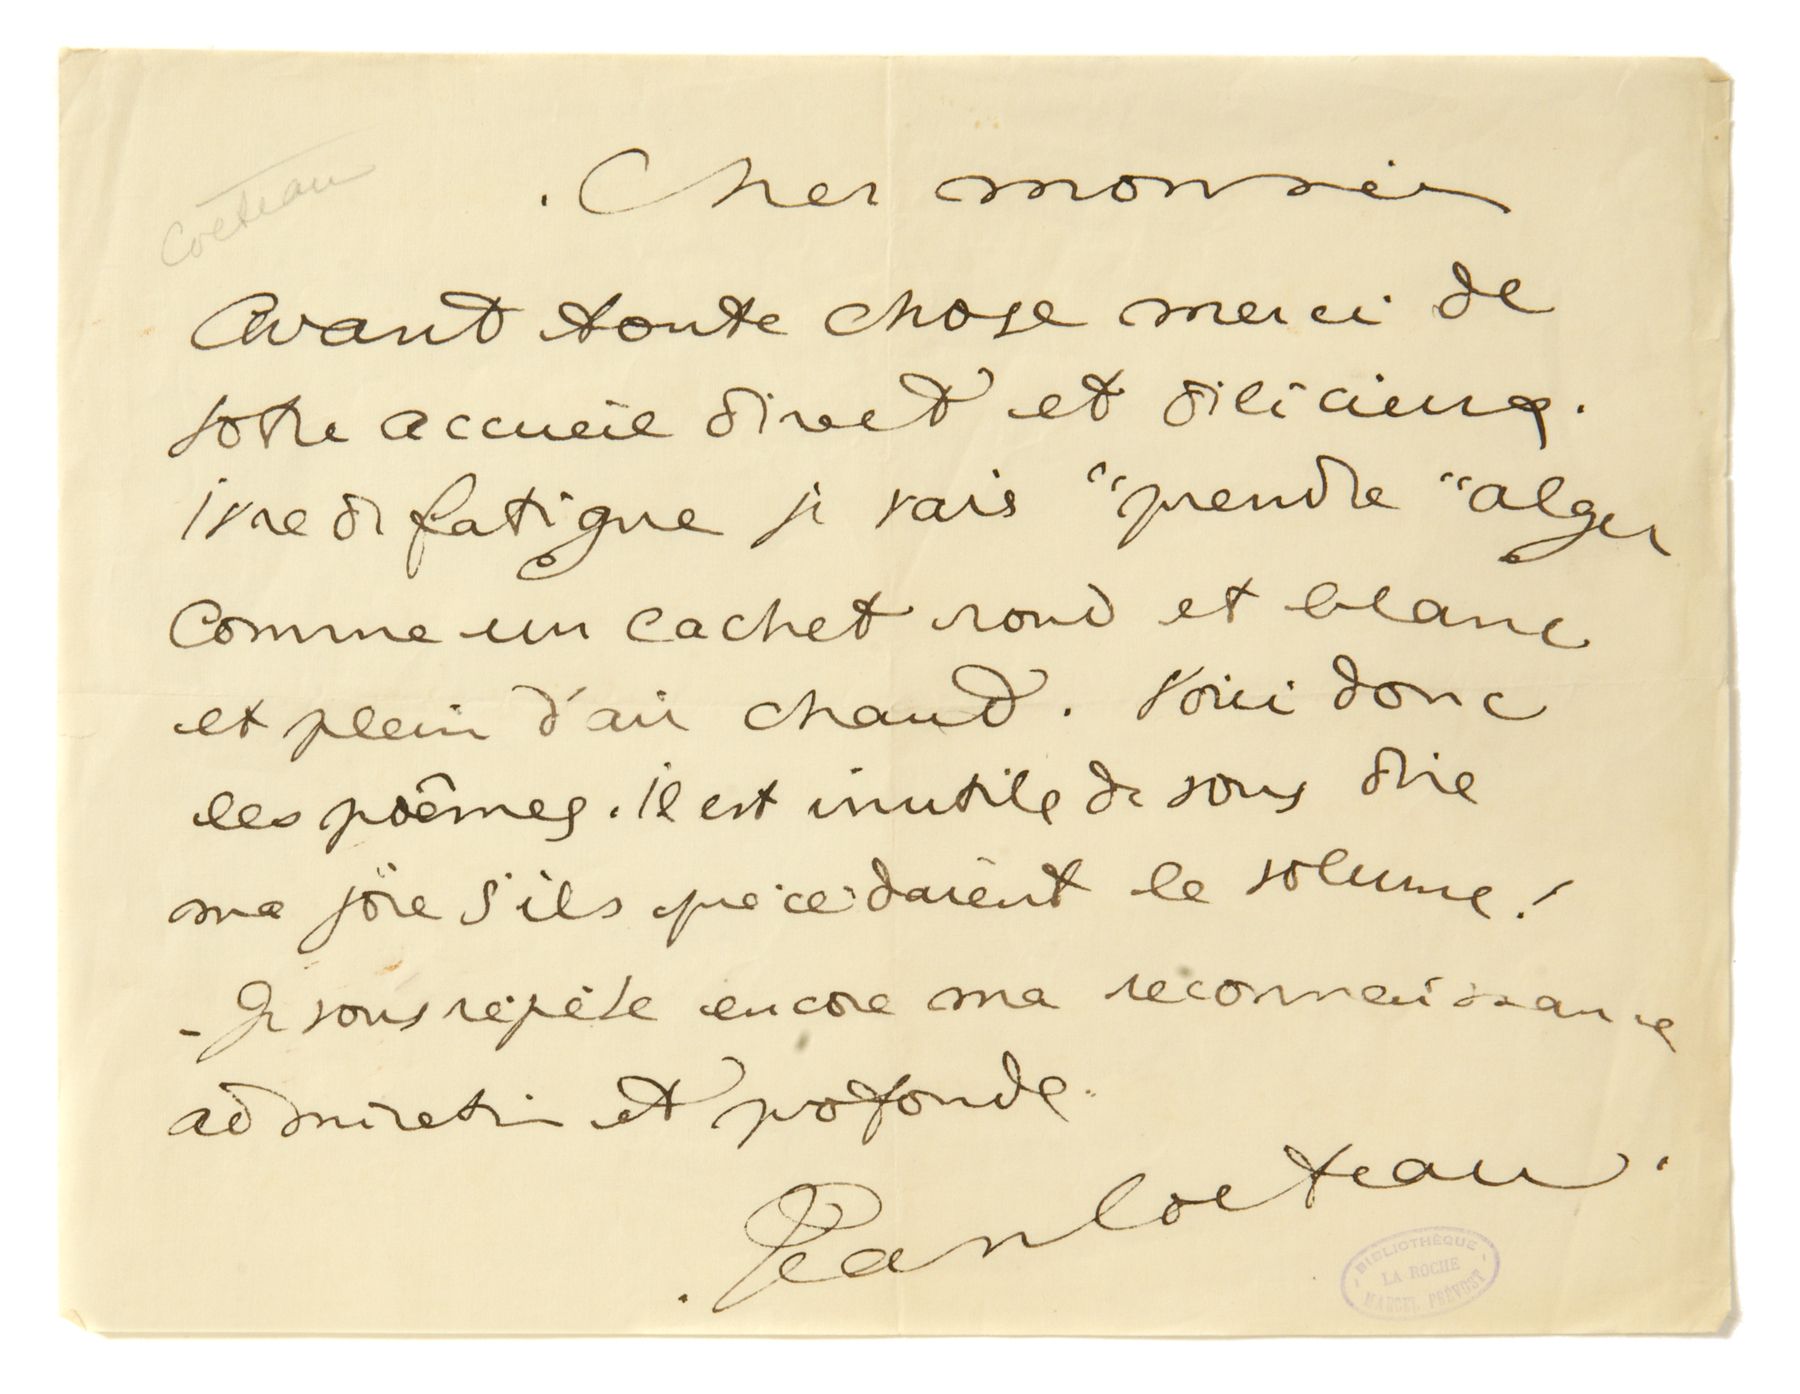 Cocteau
Cher monsieur
Avant toute chose merci de
votre accueil direct et délicieux.
ivre de fatigue je vais "prendre" alger
comme un cachet rond et blanc
et plein d'air chaud. Voici donc
les poêmes. Il est inutile de vous dire
ma joïe s'ils précédaient le volume!
- Je vous répète encore ma reconnaissance
admirative et profonde.
Jean Cocteau.
BIBLIOTHÈQUE
LA ROCHE
MARCEL PRÉVOST